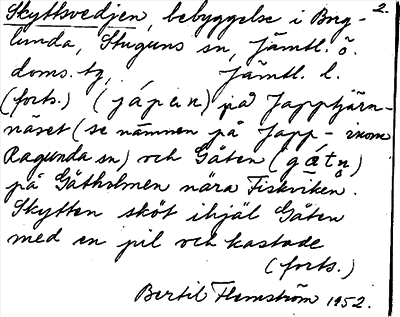 2.
Skyttsvedjen, bebyggelse i Byg-
lunda, Stuguns sn, Jämtl. ö.
doms. tg, Jämtl. l.
(forts.) (jápen) på Japptjärn-
näset (se namnen på Japp- inom
Ragunda sn) och Gåten (gǽtn̥)
på Gåtholmen nära Fiskviken.
Skytten sköt ihjäl Gåten
med en pil och kastade
(forts.)
Bertil Flemström 1952.